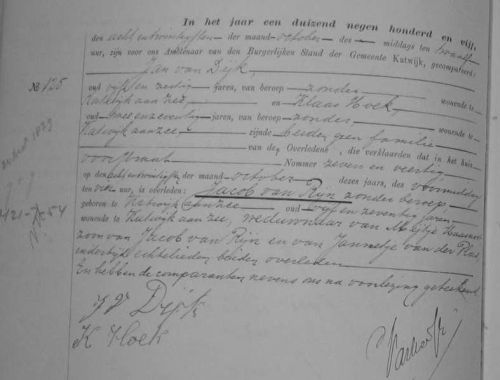 In het jaar een duizend negen honderd en vijf,
den acht en twintigsten der maand October des middags ten twaalf
ure, zijn voor ons Ambtenaar van den Burgerlijken Stand der Gemeente Katwijk, gecompareerd:
Jan van Dijk,
No 125
oud vijf en zestig jaren, van beroep zonder wonende te
Katwijk aan Zee, en Klaas Hoek,
oud twee en zeventig jaren, van beroep zonder, wonende te
Katwijk aan zee, zijnde beiden geen familie
van de Overledene, die verklaarden dat in het huis,
Nommer zeven en veertig
op den acht en twintigsten der maand October dezes jaars, des voormiddags
ten ure, is overleden: Jacob van Rijn zonder beroep
geboren te Katwijk aan zee oud vijf en zeventig jaren,
wonende te Katwijk aan zee, weduwnaar van
zoon van Jacob van Rijn en van Jannetje van der Plas,
echtelieden beiden overleden
En hebben de comparanten nevens ons na voorlezing geteekend
J v Dijk
K Hoek